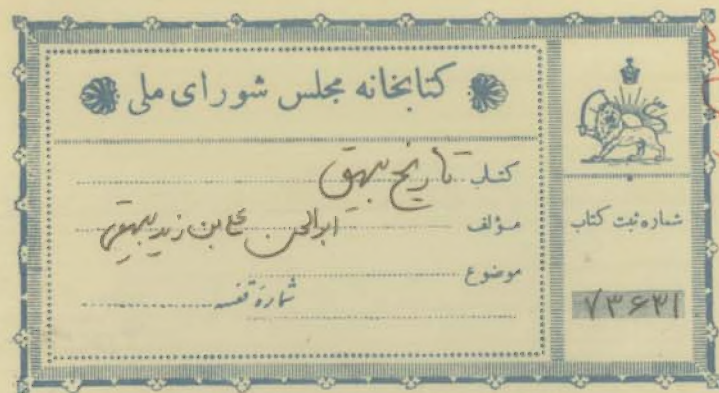 کتابخانه مجلس شورای ملی
کتاب تاریخ بیهق
مؤلف ابوالحسن علی بن زید بیهقی
موضوع
شماره قفسه
شماره ثبت کتاب
۷۳۶۳۱